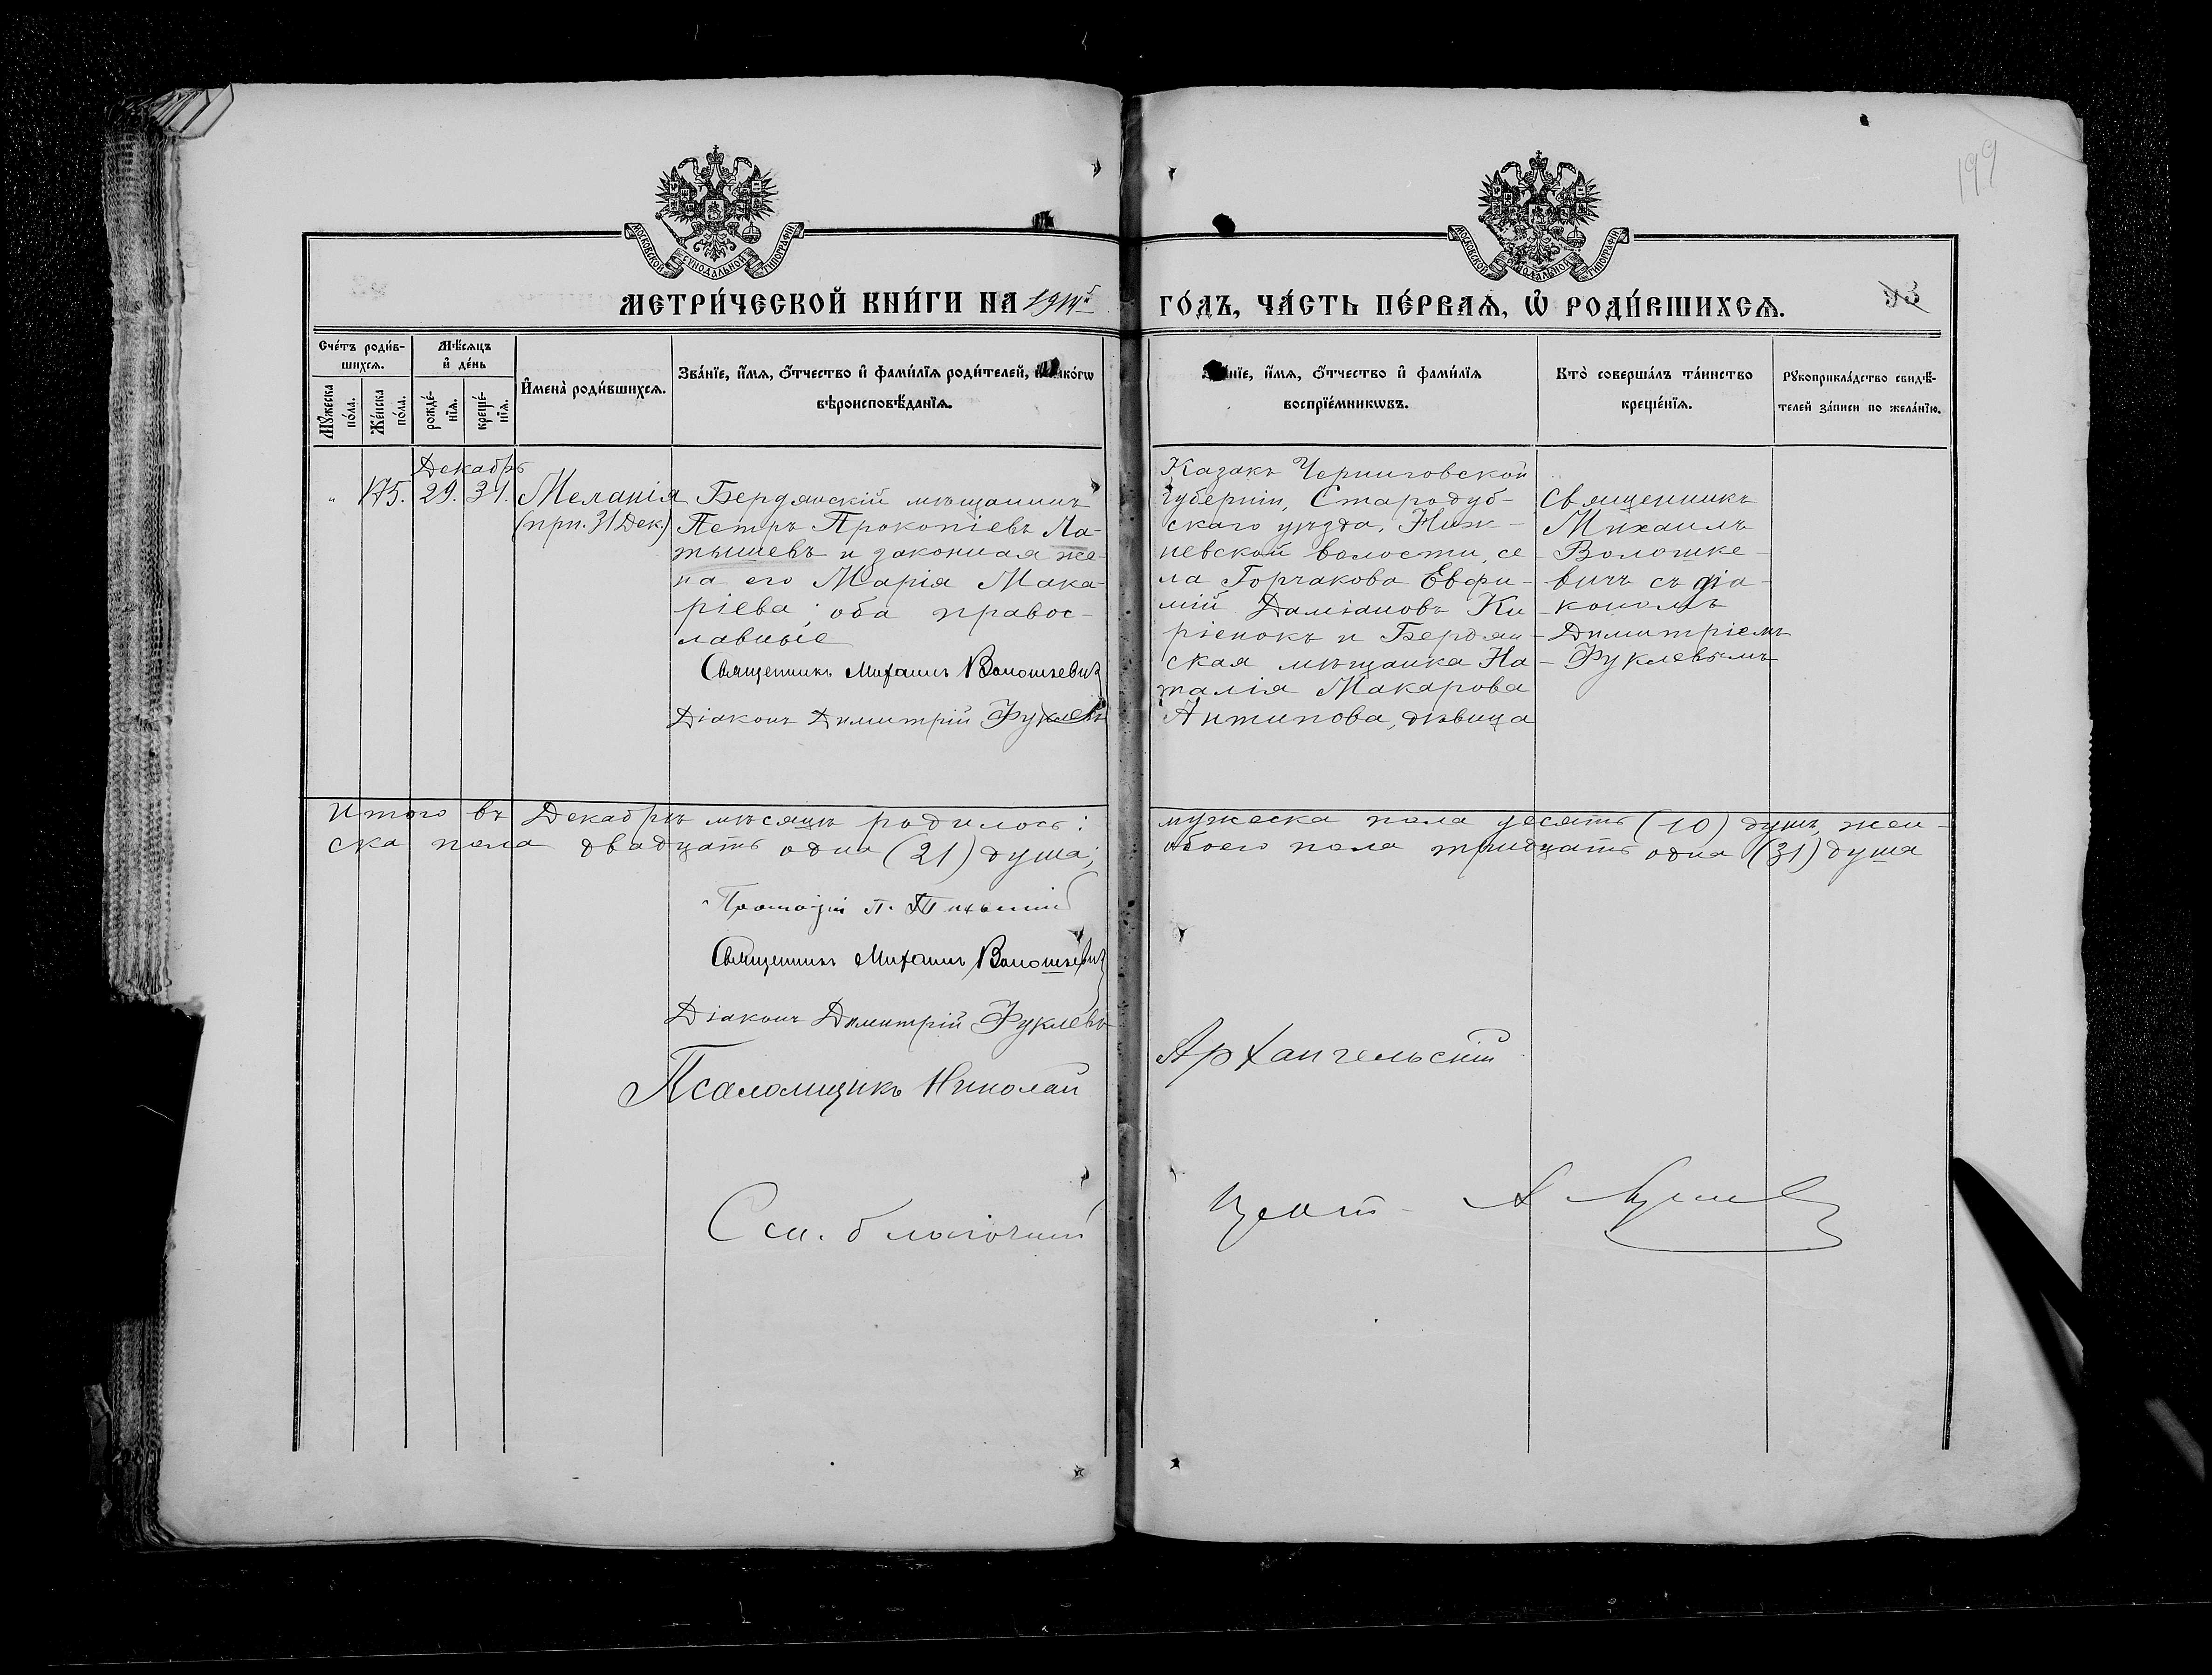 199
МОСКОВСКОЙ СУНОДАЛЬНОЙ ТИПОГРАФІИ
МОСКОВСКОЙ СУНОДАЛЬНОЙ ТИПОГРАФІИ
МЕТРИ́ЧЕСКОЙ КНИ́ГИ НА 1914й
ГО́ДЪ, ЧА́СТЬ ПЕ́РВАѦ, Ѡ҆ РОДИ́ВШИХСѦ.
93
Сче́тъ роди́в-
шихсѧ.
Мꙋ́жеска по́ла.
Же́нска по́ла.
Мѣ́сѧцъ
и҆ де́нь
рожде́-нїѧ.
креще́-нїѧ.
И҆мена̀ роди́вшихсѧ.
Зва́нїе, и҆́мѧ, ѻ҆́тчество и҆ фами́лїѧ роди́телей, и҆ како́гѡ
вѣроисповѣ́данїѧ.
Зва́нїе, и҆́мѧ, ѻ҆́тчество и҆ фами́лїѧ
воспрїе́мникѡвъ.
Кто̀ соверша́лъ та́инство
креще́нїѧ.
Рꙋкоприкла́дство свидѣ́-
телей за́писи по жела́нїю.
Декабрь
" 175. 29. 31. Меланія
(прп. 31 Дек.)
Бердянскій мѣщанинъ
Петръ Прокопіевъ Ла-
тышевъ и законная же-
на его Марія Мака-
ріева; оба правос-
лавные
Священникъ Михаилъ Волошкевичъ
Діаконъ Димитрій Фуклевъ
Казакъ Черниговской
губерніи, Стародуб-
скаго уѣзда, Ниж-
невской волости, се-
ла Горчакова Евфи-
мій Даміановъ Ки-
ріенокъ и Бердян-
ская мѣщанка На-
талія Макарова
Антипова, дѣвица
Священникъ
Михаилъ
Волошке-
вичъ съ діа-
кономъ
Димитріемъ
Фуклевымъ
Итого въ Декабрѣ мѣсяцѣ родилось: мужеска пола десять (10) душъ, жен-
ска пола двадцать одна (21) душа; обоего пола тридцать одна (31) душа
Священникъ Михаилъ Волошкевичъ
Діаконъ Димитрій Фуклевъ
Псаломщикъ Николай Архангельскій